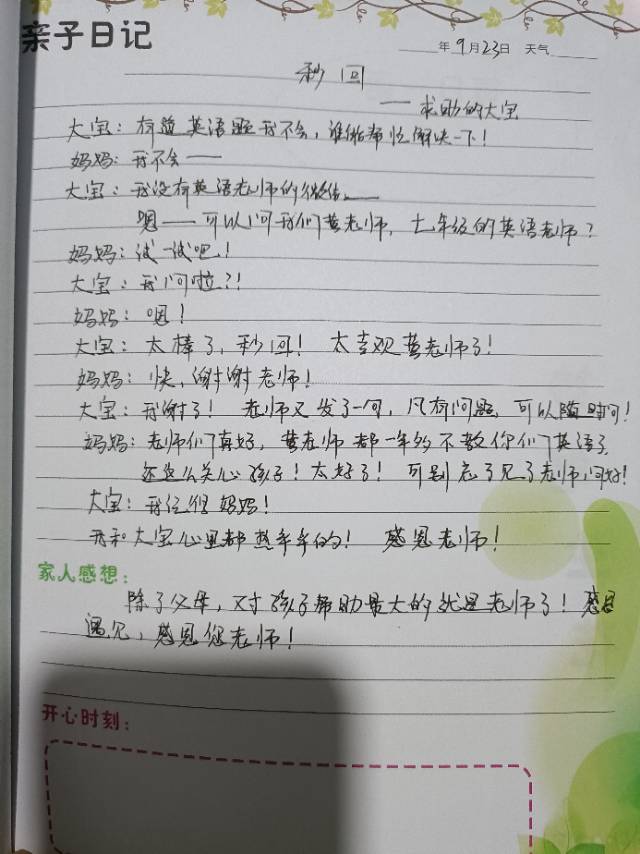 亲子日记
年9月23日 天气
秒回
——求助的大宝
大宝：有道英语题我不会，谁能帮忙解决一下！
妈妈：我不会——
大宝：我没有英语老师的微信——
嗯——可以问我们黄老师，七年级的英语老师？
妈妈：试一试吧！
大宝：我问啦?!
妈妈：嗯！
大宝：太棒了，秒回！ 太喜欢黄老师了！
妈妈：快，谢谢老师！
大宝：我谢了！ 老师又发了一句，凡有问题，可以随时问！
妈妈：老师们真好，黄老师都一年多不教你们英语了，
还这么关心孩子！太好了！ 可别忘了见了老师问好！
大宝：我记得妈妈！
我和大宝心里都热乎乎的！ 感恩老师！
家人感想：
除了父母，对孩子帮助最大的就是老师了！感恩
遇见，感恩您老师！
开心时刻：